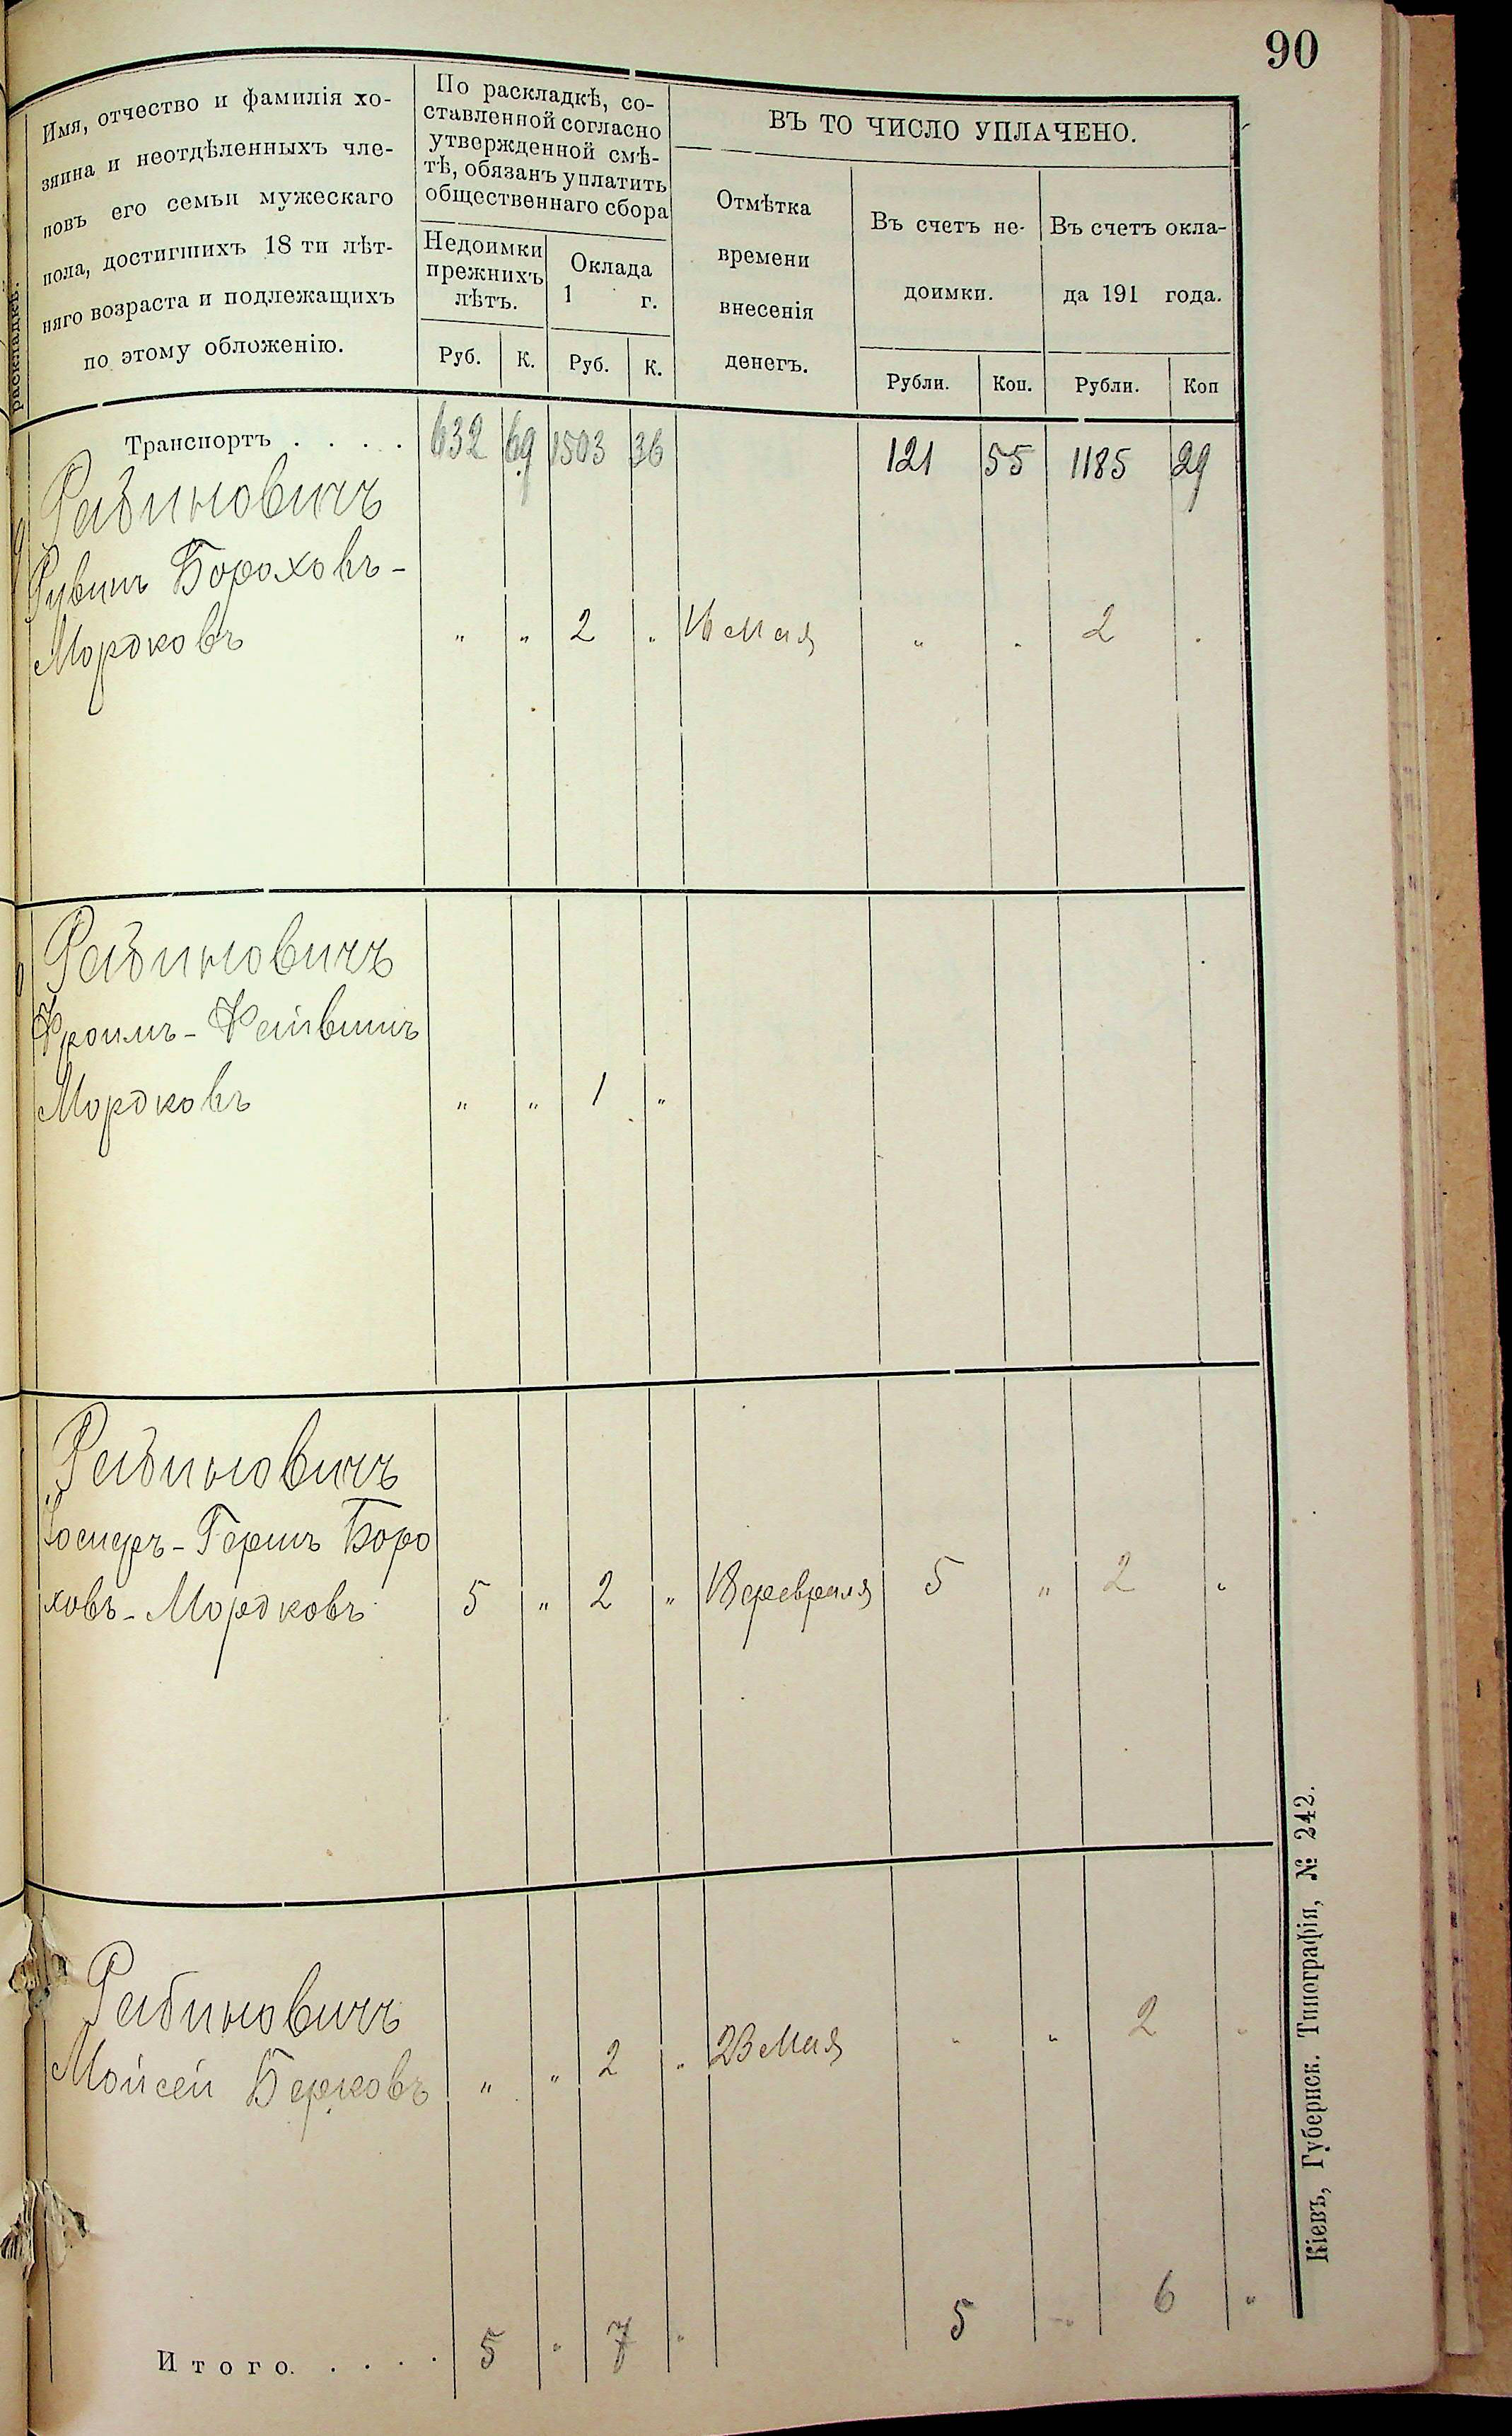 90
раскладкѣ.
Имя, отчество и фамилія хо-
зяина и неотдѣленныхъ чле-
новъ его семьи мужескаго
пола, достигшихъ 18 ти лѣт-
няго возраста и подлежащихъ
по этому обложенію.
По раскладкѣ, со-
ставленной согласно
утвержденной смѣ-
тѣ, обязанъ уплатить
общественнаго сбора
Недоимки
прежнихъ
лѣтъ.
Оклада
1 г.
Руб. К. Руб. К.
ВЪ ТО ЧИСЛО УПЛАЧЕНО.
Отмѣтка
времени
внесенія
денегъ.
Въ счетъ не-
доимки.
Въ счетъ окла-
да 191 года.
Рубли. Коп. Рубли. Коп
Транспортъ . . . . 632 69 1503 36 121 55 1185 29
Рабиновичъ
Рувинъ Бороховъ-
Мордковъ " " 2 " 16 мая " " 2 "
Рабиновичъ
Фроимъ-Фейвишъ
Мордковъ " " 1 "
Рабиновичъ
Іосифъ-Гершъ Боро
ховъ-Мордковъ 5 " 2 " 18 февраля 5 " 2 "
Рабиновичъ
Мойсей Берковъ " " 2 " 23 мая " " 2 "
Итого. . . . . 5 " 7 " 5 " 6 "
Кіевъ, Губернск. Типографія, № 242.